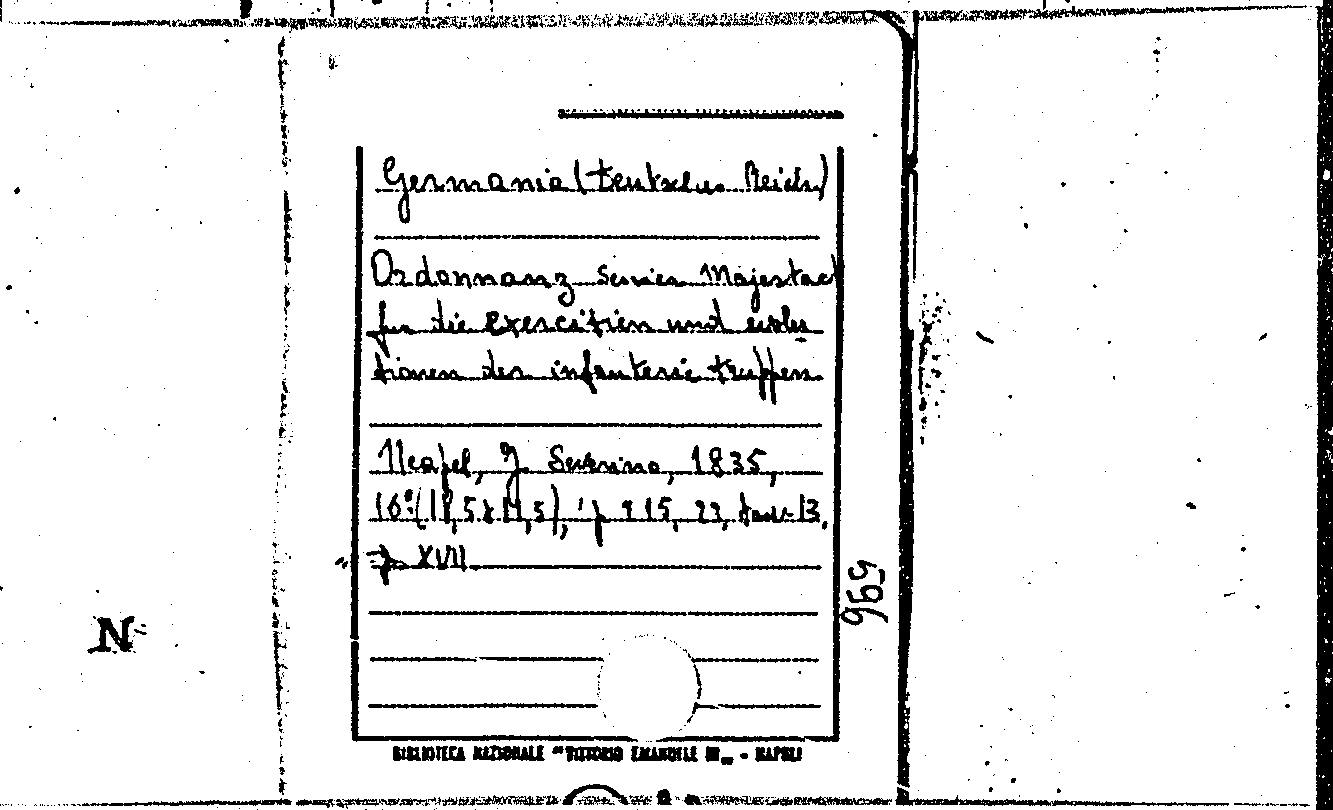 Germania (teutsches Reich)
Ordonnanz seiner Majestaet
fur die exercitien und evolu
tionen der infanterie truppen
Neapel, J. Severino, 1835,
16° (18,5 x 11,5), p. 915, 22, tav. 13,
p. XVII.
969
N
BIBLIOTECA NAZIONALE "VITTORIO EMANUELE III" - NAPOLI